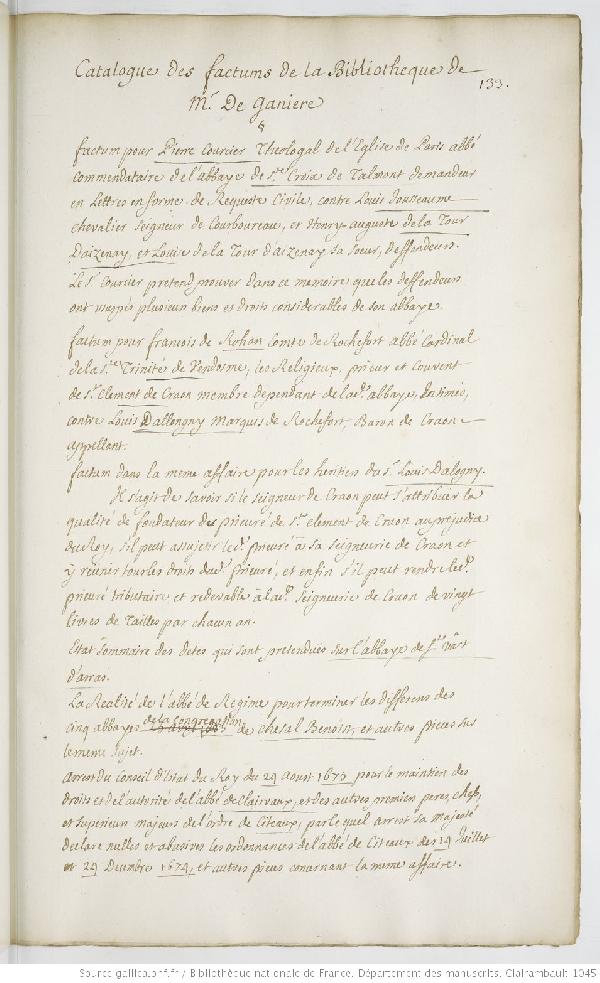 Catalogue des factums de la Bibliotheque de
133.
Mr. De Ganiere
factum pour Pierre Courcier Theologal de l'Eglise de Paris abbé
commendataire de l'abbaye de Ste. Croix de Talmont demandeur
en Lettres en forme de Requeste Civile, contre Louis Jousseaume
chevalier Seigneur de Courboureau, et Henry-auguste de la Tour
Daizenay, et Louise de la Tour d'aizenay sa Soeur, deffendeurs.
Le Sr. Courcier pretend prouver dans ce memoire que les deffendeurs
ont usurpés plusieurs biens et droits considerables de son abbaye.
factum pour francois de Rohan Comte de Rochefort abbé Cardinal
de la Ste. Trinité de Vendosme, les Religieux, prieur et Couvent
de St. Clement de Craon membre dependant de lad. abbaye, Intimés,
contre Louis Dallongny Marquis de Rochefort, Baron de Craon
appellant.
factum dans la meme affaire pour les heritiers du Sr. Louis Dalogny.
Il s'agit de savoir si le seigneur de Craon peut s'attribuer la
qualité de fondateur des prieuré de St. Clement de Craon au prejudice
du Roy, s'il peut assujetir led. prieuré à sa seigneurie de Craon et
y reunir tous les droits dud. prieuré, et enfin s'il peut rendre led.
prieuré tributaire et redevable à lad. Seigneurie de Craon de vingt
livres de Tailles par chacun an.
Etat Sommaire des detes qui sont pretendues sur l'abbaye de St. Vast
d'arras.
La Realité de l'abbé de Regime pour terminer les differens des
cinq abbayes de la Congregation de Chesal Benoin, et autres pieces sur
le meme sujet.
Arrest du Conseil d'Etat du Roy du 29 Aoust 1673 pour le maintien des
droits et de l'autorité de l'abbé de Clairvaux, et des autres premiers peres, chefs,
et superieurs majeurs de l'ordre de Citeaux, par lequel arrest sa majesté
declare nulles et abusives les ordonnances de l'abbé de Citeaux des 19 Juillet
et 29 Decembre 1672, et autres pieces concernant la meme affaire.
Source gallica.bnf.fr / Bibliothèque nationale de France. Département des manuscrits. Clairambault 1045